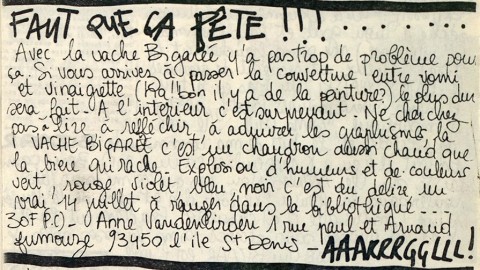 FAUT QUE ÇA PÊTE !!! . . . . . .
Avec la vache Bigarée y'a pas trop de problème pour
ça. Si vous arrives à passer la couverture entre vomi
et vinaigrette (Ka! bon il y a de la peinture?) le plus dur
sera fait. A l'interieur c'est surprenant. Ne cherchez
pas à lire à réfléchir, à admirer les graphismes, la
VACHE BIGARÉE c'est un chaudron aussi chaud que
la biere qui rache. Explosion d'humeurs et de couleurs
vert, rouge violet, bleu noir c'est du delire un
vrai 14 juillet à ranger dans la bibliothèque ....
30F P.C) - Anne Vandenlinden 1 rue paul et Arnaud
fumouze 93450 l'ile St Denis - AAAKRRGGLLL!